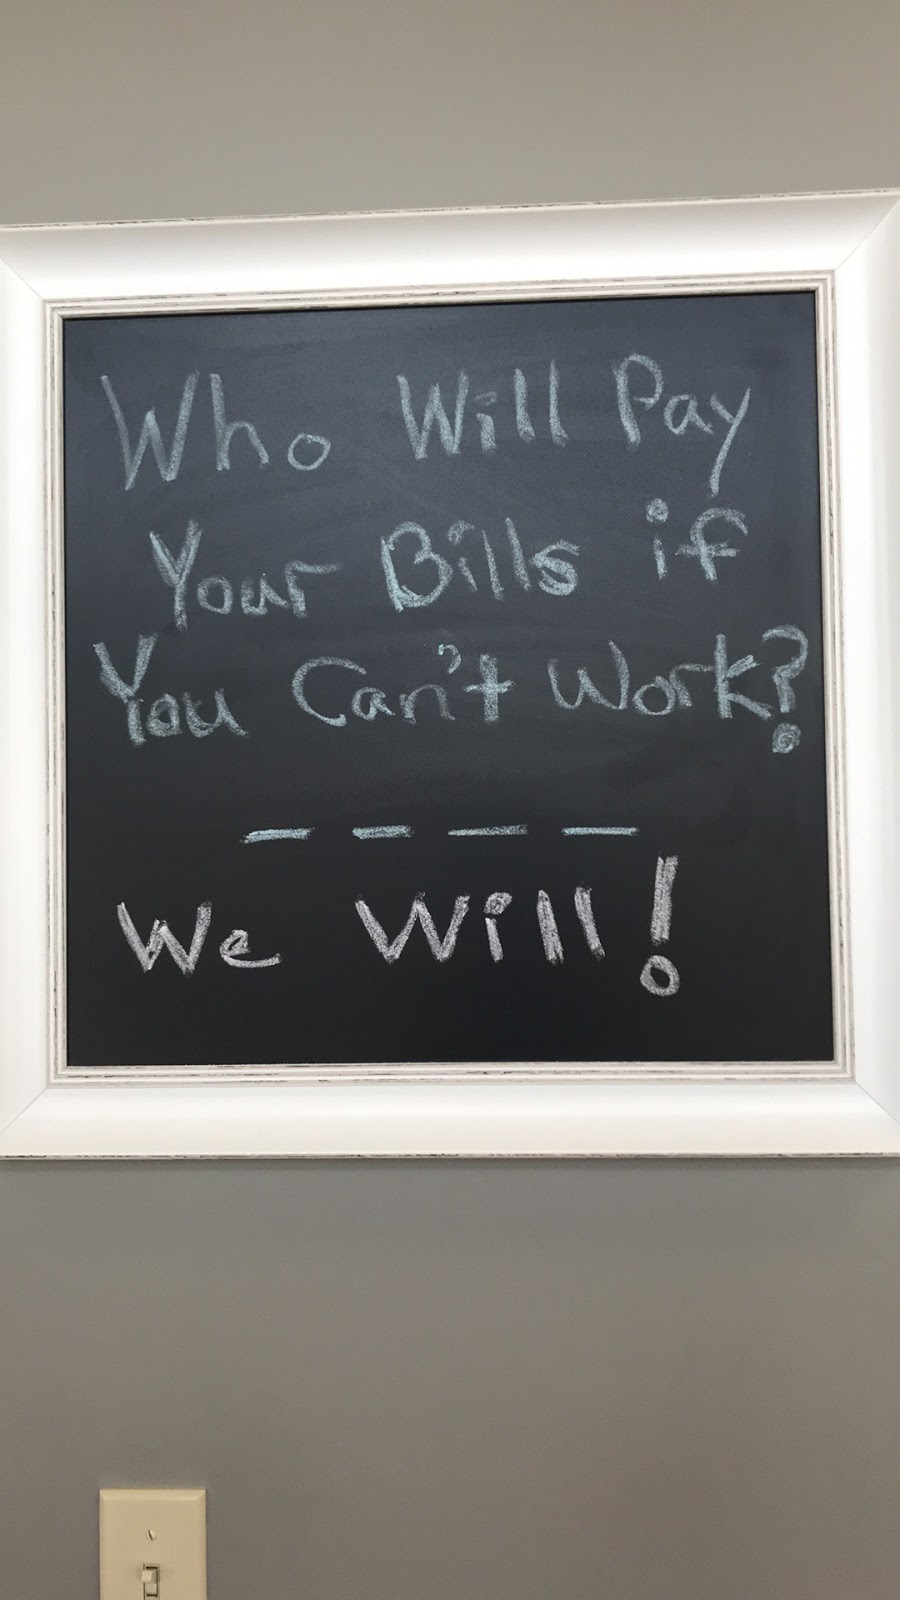 Who Will Pay
Your Bills if
You Can't Work?
— — — —
We Will!